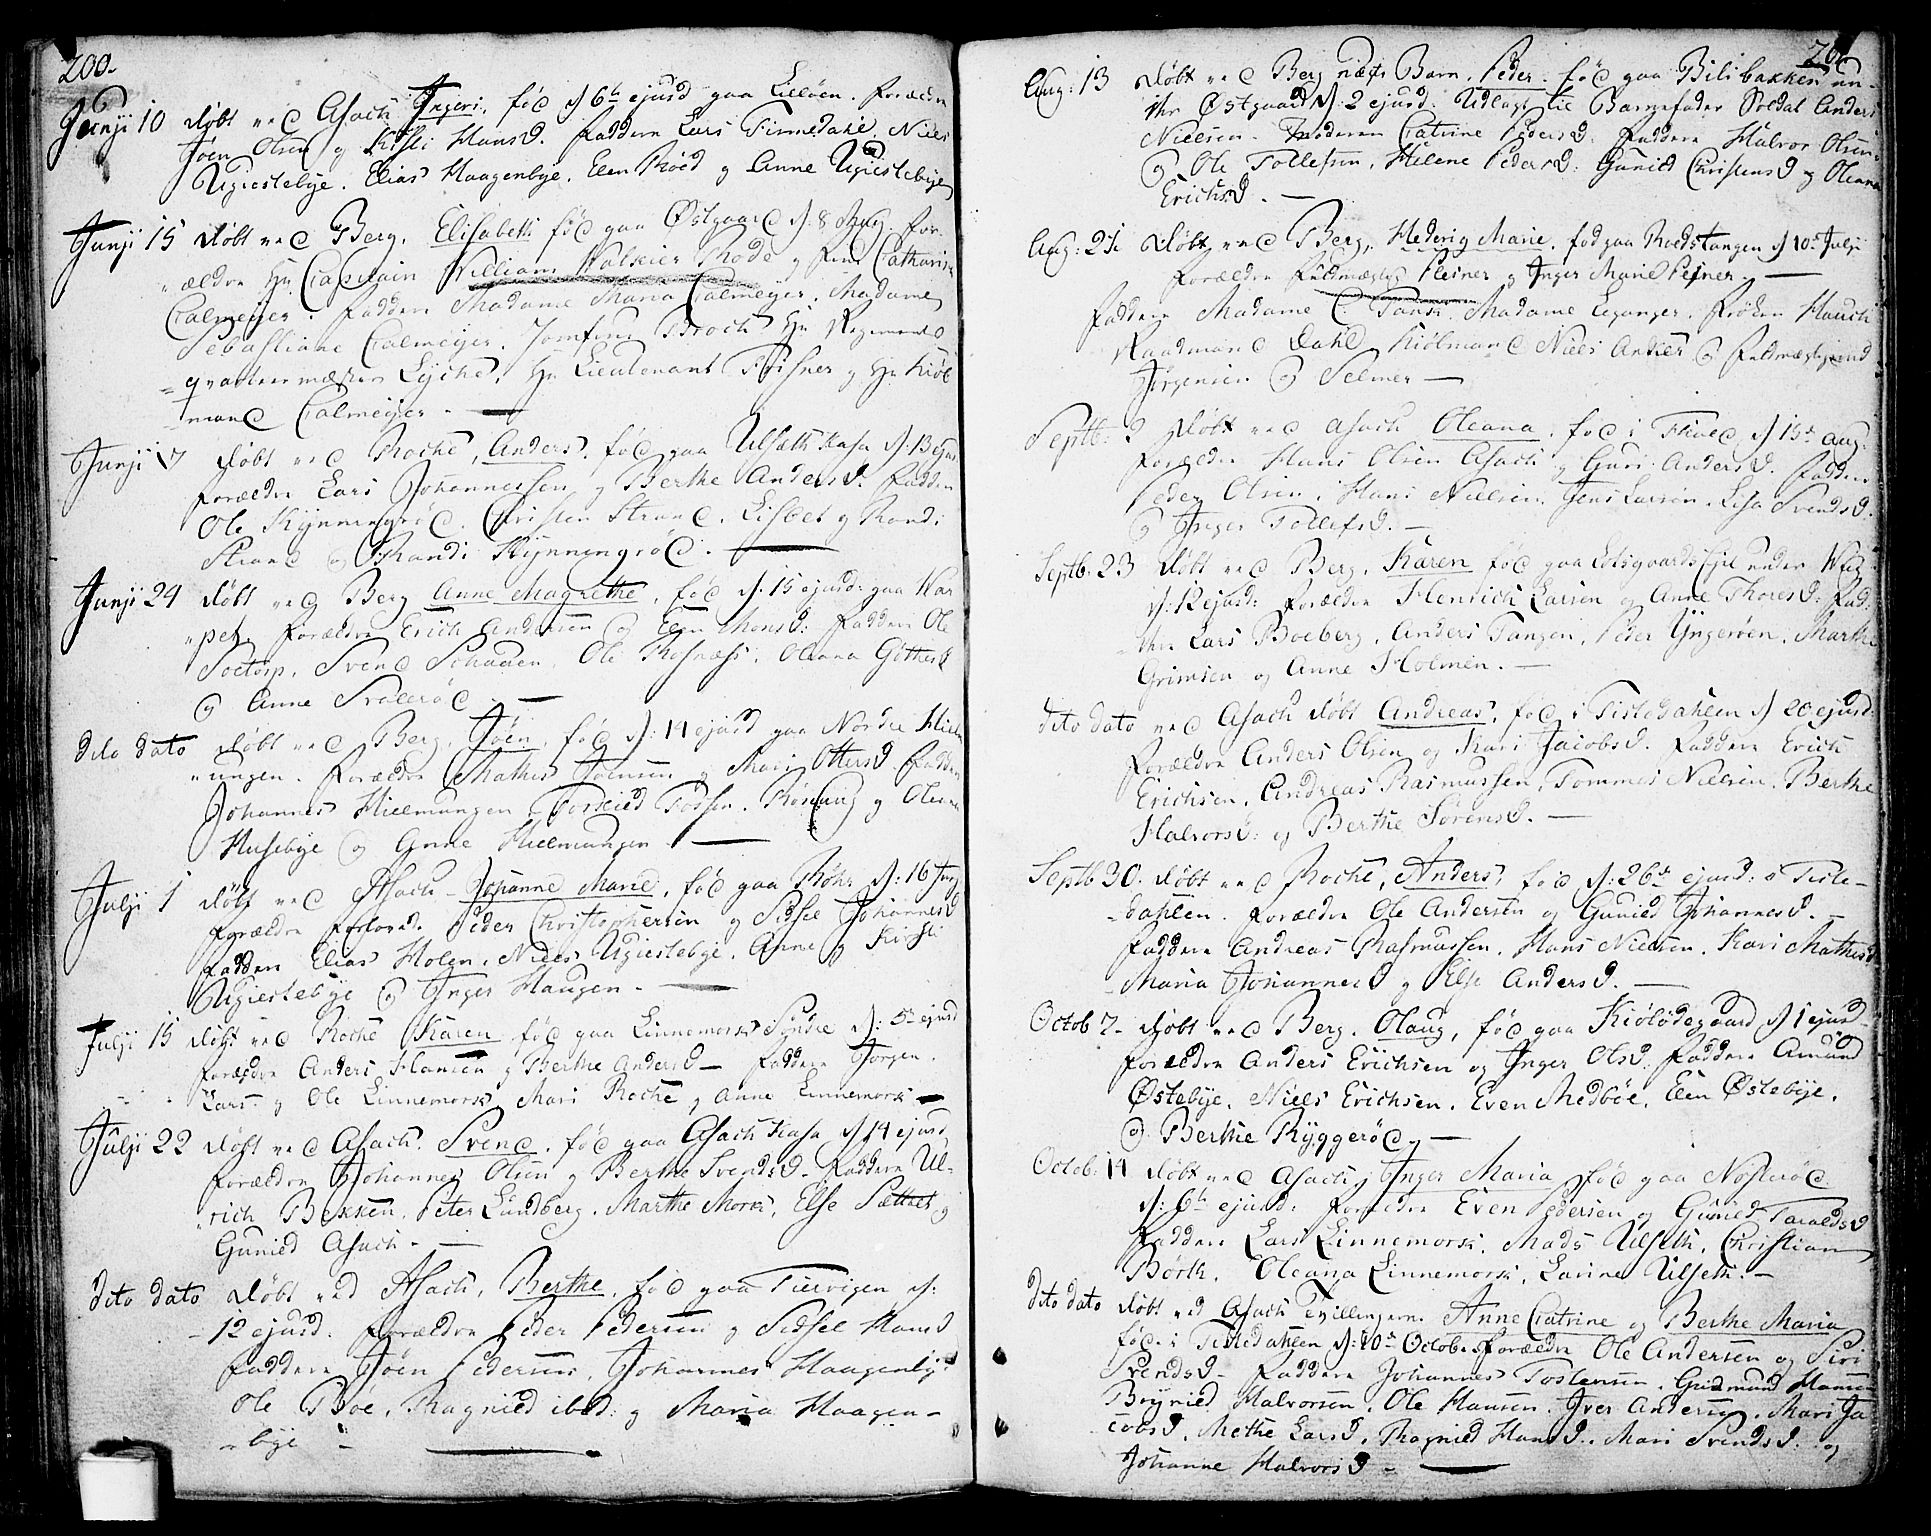 200.
Junji 10 Døbt ved Asach Ingeri, fød d: 6te ejusd paa Lilløen. Forældre
Joen Olsen og Kisti Hansd. Faddere Lars Tinnedahl. Niels
Ugiestebye. Elias Haagenbye. Elen Røed og Anne Ugiestebye
Junji 15 Døbt ved Berg. Elisabeth fød paa Østgaard d: 8 Maj. For-
ældre Hr Capitain William Walkier Rode og Catharina
Calmeijer. Faddere Madame Maria Calmeijer. Madame
Sebastiane Calmeijer. Jomfrue Broch Hr Regiments
qvarteermæster Lyche. Hr Lieutenant Teisner og Hr Kiøb
mand Calmeijer.
Junji 17 Døbt ved Rocke, Anders, fød paa Ulseth Kasa d: 13 ejus
Forældre Lars Johannessen og Berthe Andersd. Faddere
Ole Kynningrød. Christen Strand. Lisbet og Randi
Strand og Randi Kynningrød.
Junji 24 Døbt ved Berg Anne Magrethe, fød d: 15 ejusd: paa War
pet. Forældre Erich Andersen og Elen Monsd: Faddere Ole
Soetorp, Svend Schauen, Ole Rosnæss, Oleana
og Anne Svalerød
dito dato Døbt ved Berg, Joen, fød d: 14 ejusd paa Nordre Hiel
mungen. Forældre Mathis Joensen og Mari Ottersd. Faddere
Johannes Hielmungen, Torkild Tossen. og Oleana
Husebye og Gune Hielmungen
Julji 1 Døbt ved Asach Johanne Marie, fød paa d: 16 Junj
Forældre Forlovede Peder Christophersen og Sidsel Johannesd
Faddere Elias Holen. Niels Ugiestebye. Anne og Kirsti
Ugiestebye og Inger Haugen.
Julji 15 Døbt ved Rocke Karen fød paa Linnemork Søndre d: 5te ejusd
Forældre Anders Hansen og Berthe Andersd. Faddere Jørgen.
Lars og Ole Linnemork, Mari Rocke og Anne Linnemork
Julji 22 Døbt ved Asach. Svend. fød paa Asach Kasa d: 14 ejusd
Forældre Johannes Olsen og Berthe Svendsd. Faddere Ul-
rich Bekken, Peter Lundberg. Marthe Mork, Else Sættet og
Gunild Asach.
dito dato Døbt ved Asach, Berthe, fød paa Tiervigen d:
12 ejusd. Forældre Peder Pedersen og Sidsel Hansd
Faddere Joen Pedersen, Johannes Haagenby
Ole Bøe, Ragnild ibid: og Maria Haagen-
bye
Aug: 13 Døbt ved Berg uægte Barn, Peder. fød paa Bilibakken un-
der Østgaard d: 2 ejusd. Udlagt til Barnefader Soldat Anders
Nielsen. Moderen Catrine Pedersd. Faddere Halvor Olsen.
og Ole Tollefsen, Helene Pedersd: Gunild Christensd og Oleana
Erichsd.
Aug: 21 Døbt ved Berg, Hedevig Marie. fød paa Roedstangen d: 10de Julji
Forældre Fuldmægtig Pleiner og Inger Marie Pleiner.
Faddere Madame C. Tank. Madame Leganger. Frøken Hauch
Raadmand Dahl Kiøbmand Niels Anker og Fuldmægtigerne
Jørgensen og Selmer
Septb: 2 Døbt ved Asach Oleana, fød i d: 15de Aug:
Forældre Hans Olsen Asach og Guri Andersd. Faddere
Peder Olsen, Hans Nielsen, Jens Larsøn. Lisa Svendsd.
og Inger Tollefsd.
Septb: 23 Døbt ved Berg, Karen fød paa Eie under
d: 12 ejusd: Forældre Henrich Larsen og Anne Thoresd: Fad-
dere Lars Boeberg, Anders Tangen, Peder Yngerøen. Marthe
Grimsen og Anne Holmen.
dito dato ved Asach døbt Andreas, fød i Tistedahlen d 20 ejusd:
Forældre Anders Olsen og Kari Jacobsd. Faddere Erich
Erichsen, Andreas Rasmussen, Tommes Nielsen. Berthe
Halvorsd: og Berthe Sørensd.
Septb 30. Døbt ved Rocke, Anders, fød d: 26de ejusd: i Tiste-
dahlen. Forældre Ole Andersen og Gunild Johannesd.
Faddere Andreas Rasmussen. Hans Nielsen. Kari Mathisd
Maria Johannesd og Else Andersd.
Octob 7 Døbt ved Berg. Olaug, fød paa Kiølødegaard d 1 ejusd
Forældre Anders Erichsen og Inger Olsd. Faddere Amund
Østebye. Niels Erichsen. Even Medbøe. Elen Østebye.
og Berthe Ryggerød.
Octob: 14 Døbt ved Asach, Inger Maria fød paa Nosterød.
d: 6te ejusd: Forældre Even Pedersen og Gunild Taraldsd
Faddere Lars Linnemork. Mads Ulseth. Christian
Børk. Oleana Linnemork. Larine Ulseth.
dito dato Døbt ved Asach Tvillingerne. Anne Catrine og Berthe Maria
fød. i Tistedahlen d: 10de Octob. Forældre Ole Andersen og Siri
Svendsd. Faddere Johannes Tostensen. Gudmund Hansen
Brynild Halvorsen. Ole Hansen. Iver Andersen. Mari Ja
cobsd. Methe Larsd. Ragnild Hansd. Mari Svendsd. og
Johanne Halvorsd